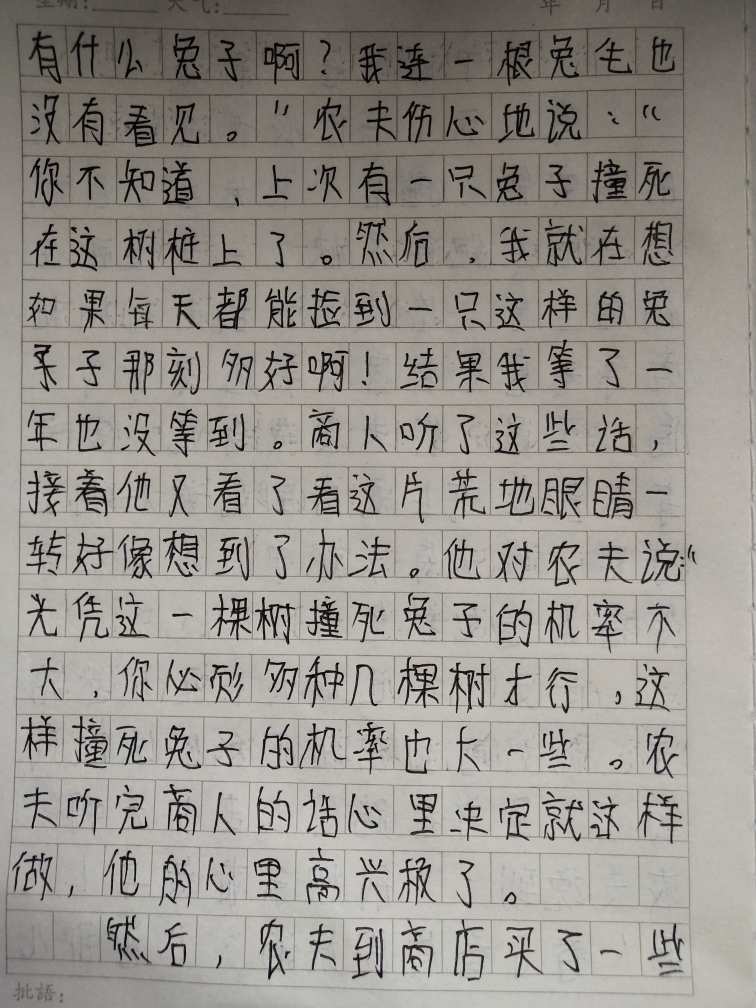 星期：　天气：　年　月　日
有什么兔子啊？我连一根兔毛也
没有看见。”农夫伤心地说：“
你不知道，上次有一只兔子撞死
在这树桩上了。然后，我就在想
如果每天都能捡到一只这样的兔
子那刻多好啊！结果我等了一
年也没等到。商人听了这些话，
接着他又看了看这片荒地眼睛一
转好像想到了办法。他对农夫说：“
光凭这一棵树撞死兔子的机率不
大，你必须多种几棵树才行，这
样撞死兔子的机率也大一些。农
夫听完商人的话心里决定就这样
做，他的心里高兴极了。
然后，农夫到商店买了一些
批語：